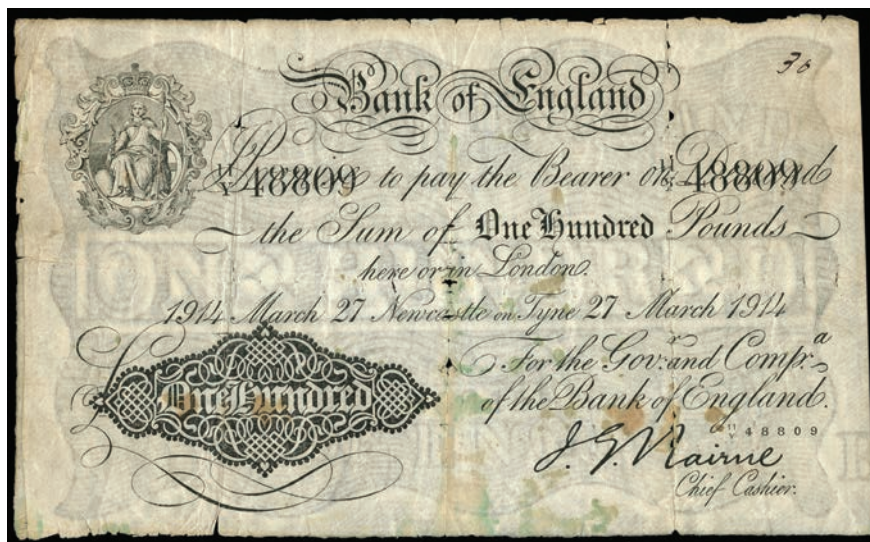 30
Bank of England
11/Y 48809 I Promise to pay the Bearer on Demand 11/Y 48809
the Sum of One Hundred Pounds
here or in London.
1914 March 27 Newcastle on Tyne 27 March 1914
For the Govr. and Compa.
of the Bank of England.
One Hundred
11/Y 48809
J. G. Nairne
Chief Cashier.